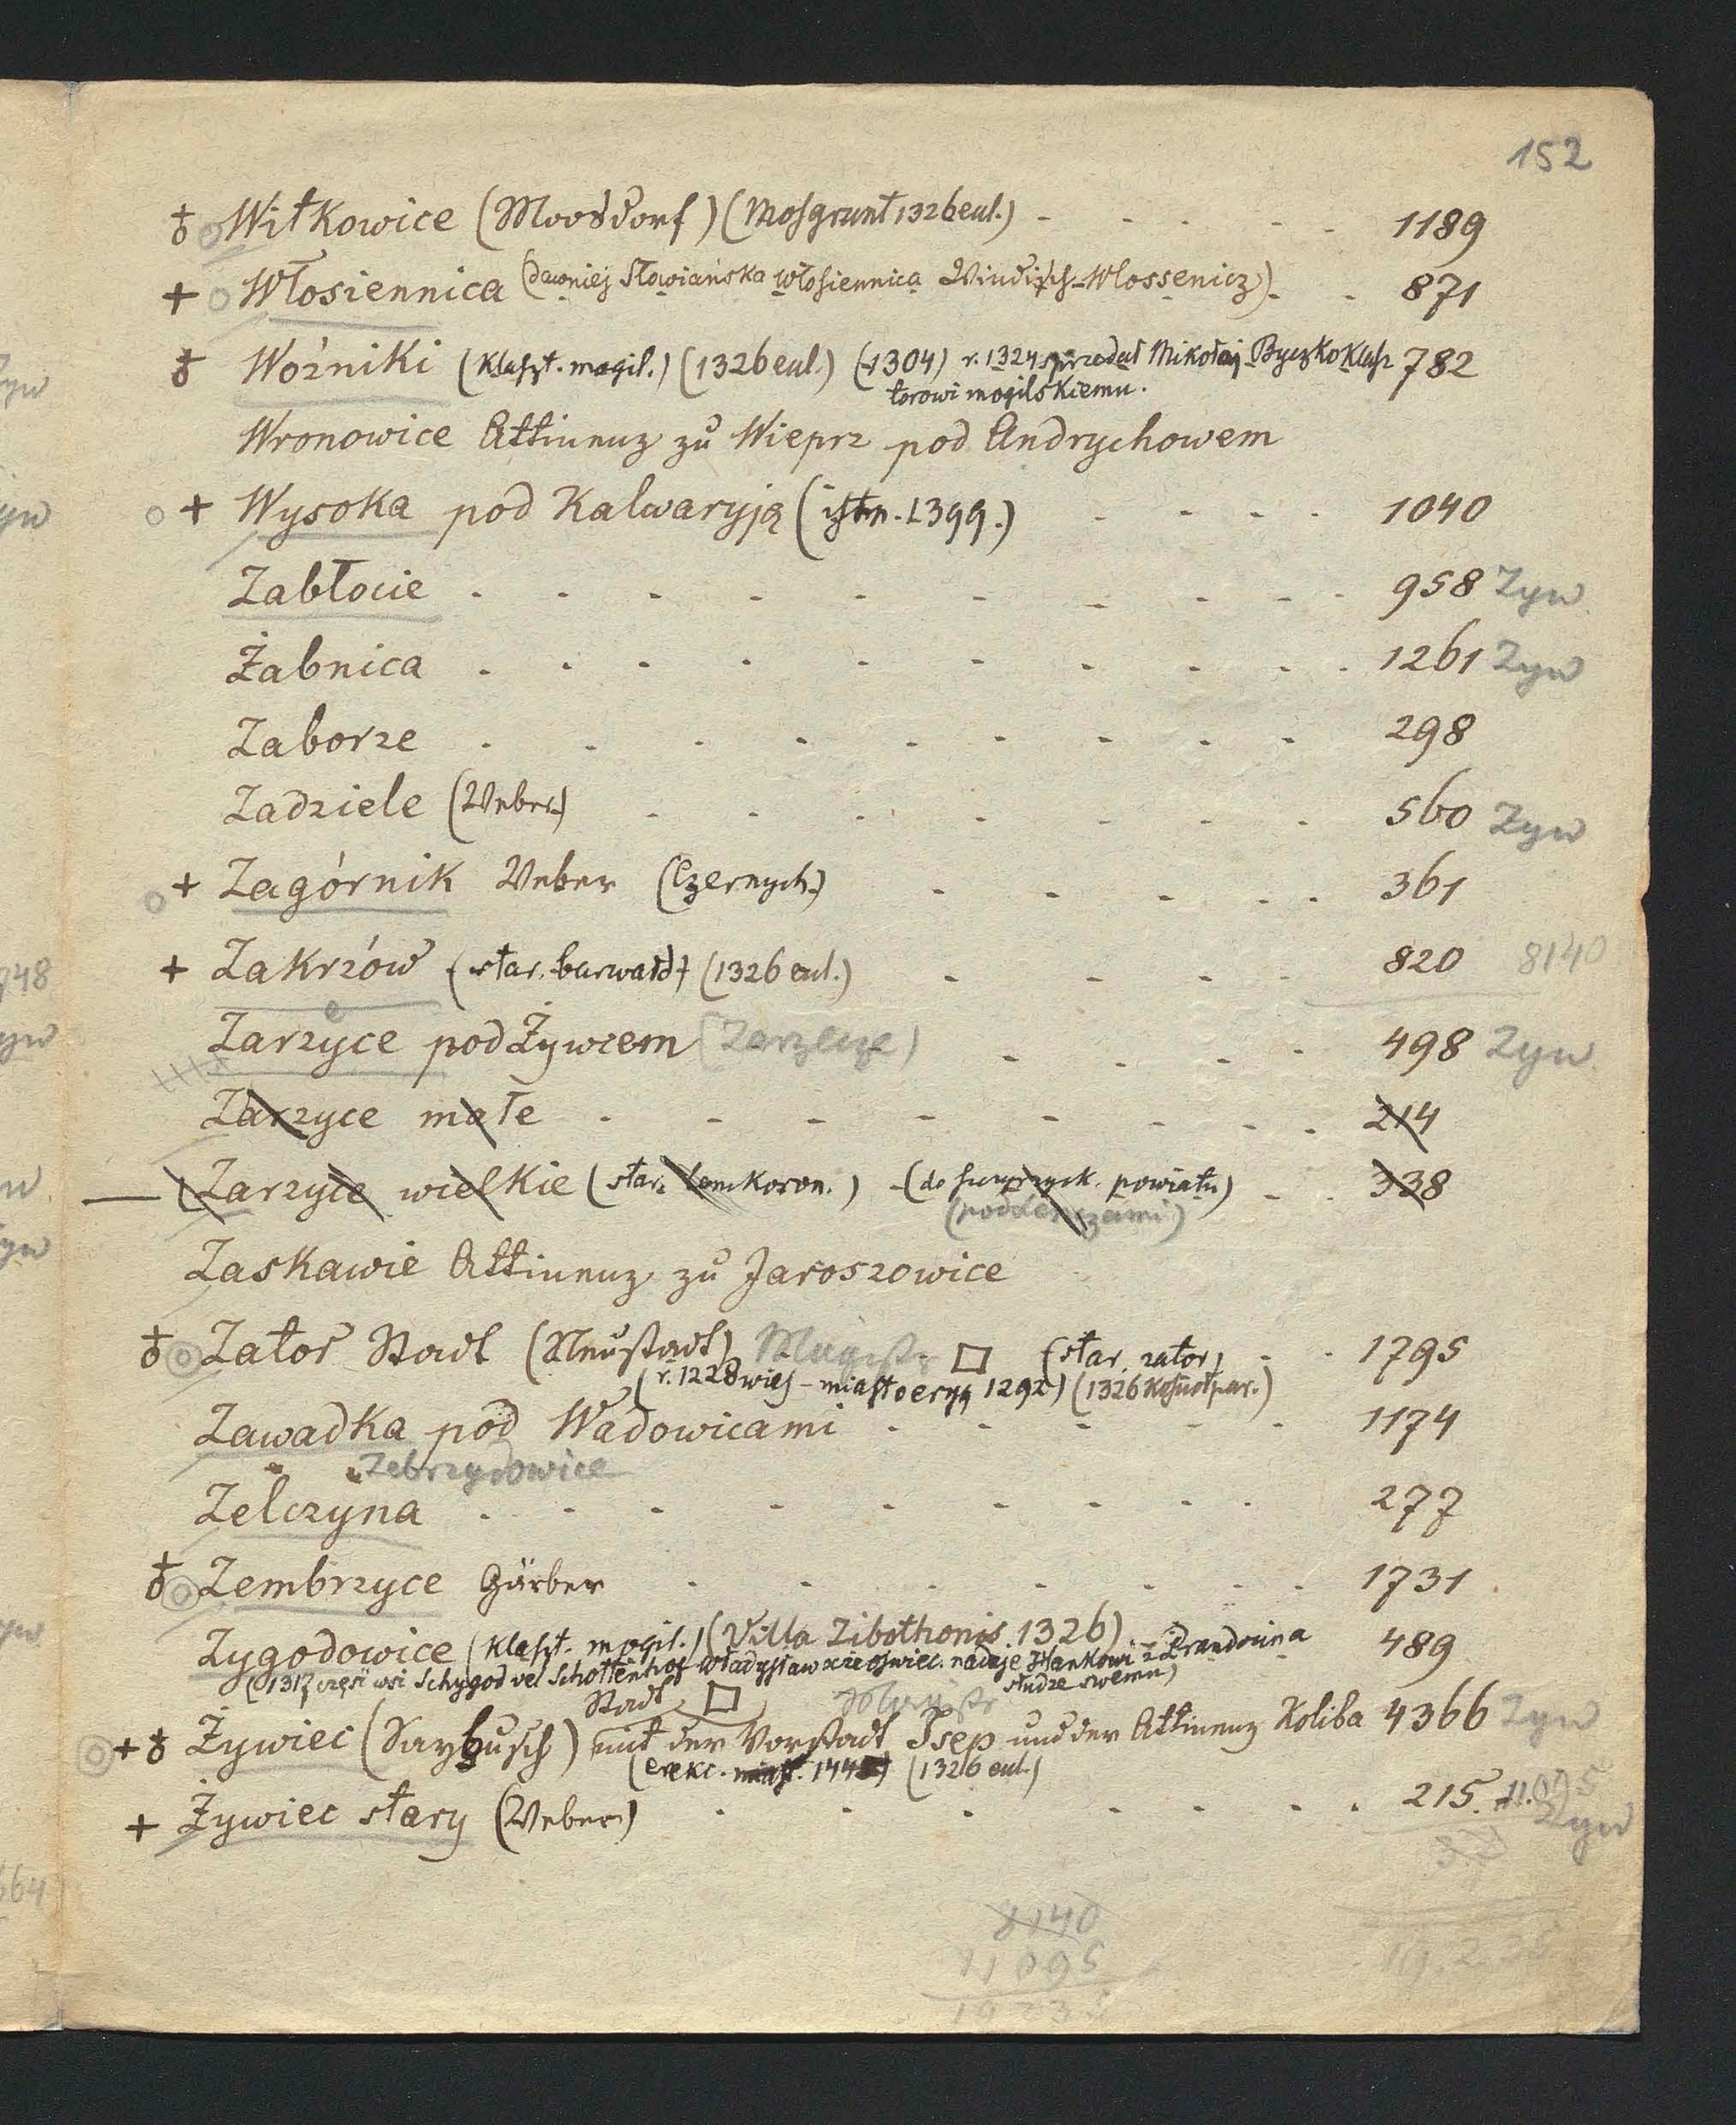 152
Witkowice (Moosdorf) (Mosgrunt 1326 eul.) - - - - - 1189
+ Włosiennica (dawniej Słowiańska Włosiennica Windisch-Wlossenicz) - - 871
Woźniki (Klaszt. mogil.) (1326 eul.) (1304) r. 1324 sprzedał Mikołaj Byczko Klasz 782
torowi mogilskiemu.
Wronowice Attinenz zu Wieprz pod Andrychowem
+ Wysoka pod Kalwaryją (istn. 1399.) - - - - 1040
Zabłocie - - - - - - - - - 958 Zyw
Żabnica - - - - - - - - - 1261 Zyw
Zaborze - - - - - - - - - 298
Zadziele (Weber) - - - - - - - 560 Zyw
+ Zagórnik Weber (Czernych.) - - - - - 361
+ Zakrzów (star. barwałd) (1326 eul.) - - - - 820 8140
Zarzyce pod Żywcem (Zarzecze) - - - - 498 Zyw
Zarzyce małe - - - - - - - - 214
Zarzyce wielkie (star. Lanckoron.) - (do powiatu) - - 338
Zaskawie Attinenz zu Jaroszowice
Zator Stadt (Neustadt) Magistr □ (star. zator) - - 1795
(r. 1228 wieś - miasto eryg 1292) (1326 Kościoł par.)
Zawadka pod Wadowicami - - - - - 1174
Zebrzydowice
Zelczyna - - - - - - - - - 277
Zembrzyce Gärber - - - - - - - 1731
Zygodowice (Klaszt. mogil.) (Villa Zibothonis 1326) 489
(1317 część wsi Schygod vel Schottenhof Władysław xże oświec. nadaje Hankowi z Brandocina
słudze swemu)
Stadt □ Magistr
+ Żywiec (Saybusch) mit der Vorstadt Isep und der Attinenz Koliba 4366 Zyw
(erekc. miast. 144) (1326 eul.)
+ Żywiec stary (Weber) - - - - - - - 215. 11.095
Zyw
8140
11095
19235
19.235